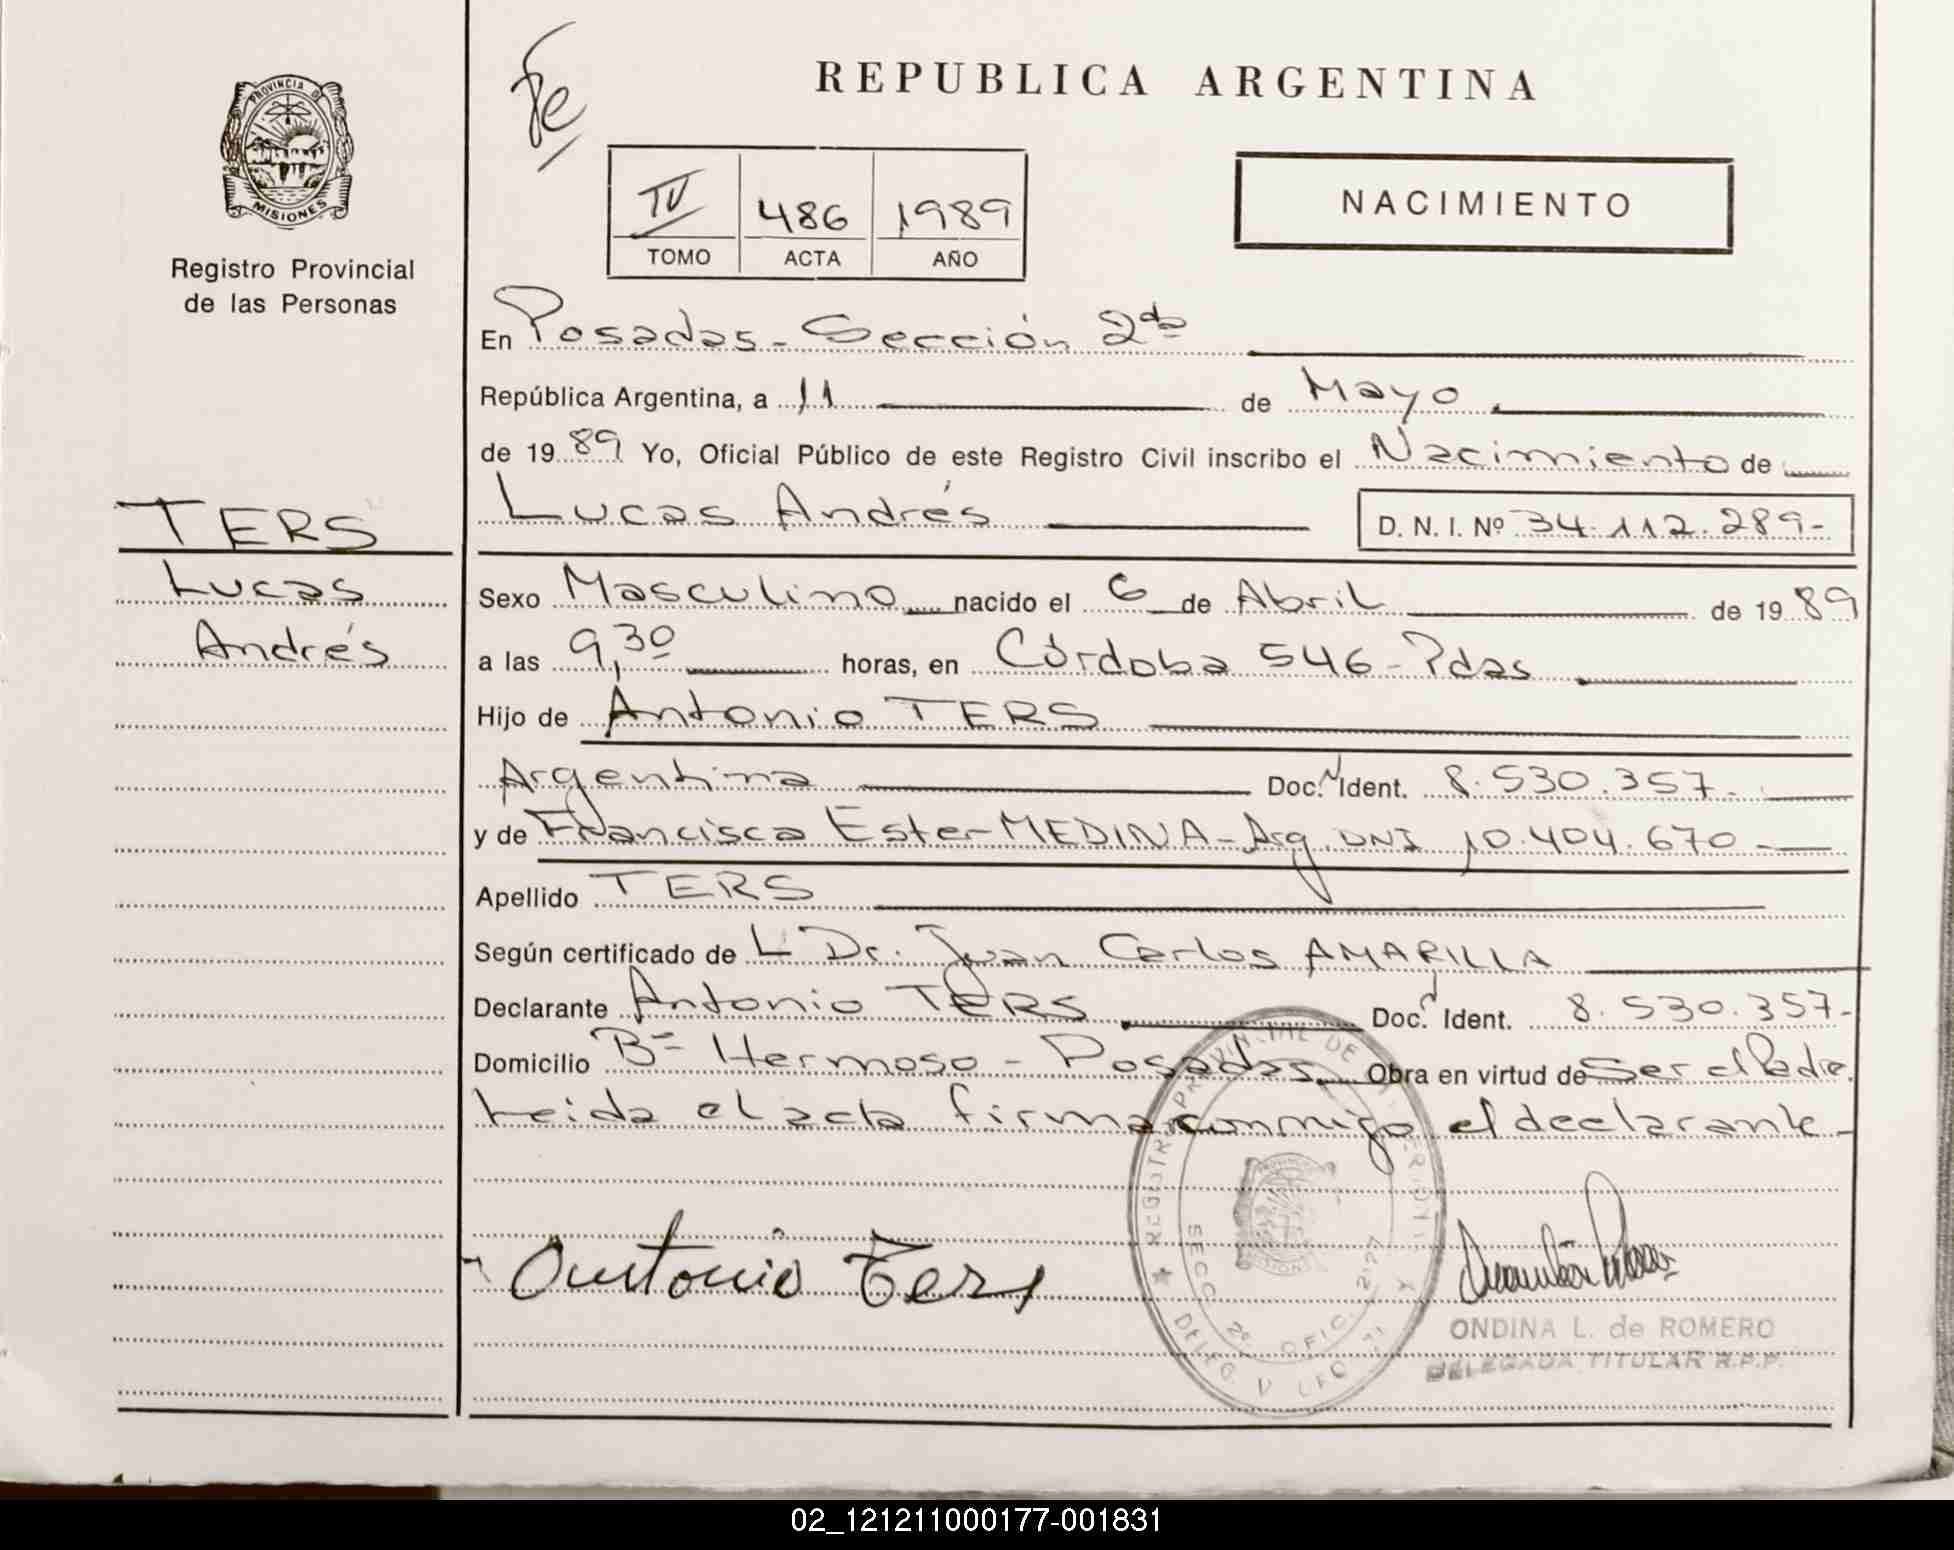 Fe
REPUBLICA ARGENTINA
PROVINCIA DE
MISIONES
Registro Provincial
de las Personas
IV 486 1989
TOMO ACTA AÑO
NACIMIENTO
En Posadas - Sección 2da
República Argentina, a 11 de Mayo
de 1989 Yo, Oficial Público de este Registro Civil inscribo el Nacimiento de
Lucas Andrés D. N. I. Nº 34.112.289-
TERS
Lucas
Andrés
Sexo Masculino nacido el 6 de Abril de 1989
a las 9,30 horas, en Córdoba 546 - Pdas
Hijo de Antonio TERS
Argentina Doc. Ident. 8.530.357.-
y de Francisca Ester MEDINA - Arg. DNI 10.404.670.-
Apellido TERS
Según certificado de L Dr. Juan Carlos AMARILLA
Declarante Antonio TERS Doc. Ident. 8.530.357-
Domicilio Bº Hermoso - Posadas Obra en virtud de Ser el Padre.
Leida el acta firma conmigo el declarante-
Antonio Ters
REGISTRO PROVINCIAL DE
SECC. 2º OFIC. 2177
ONDINA L. de ROMERO
DELEGADA TITULAR R.P.P.
02_121211000177-001831